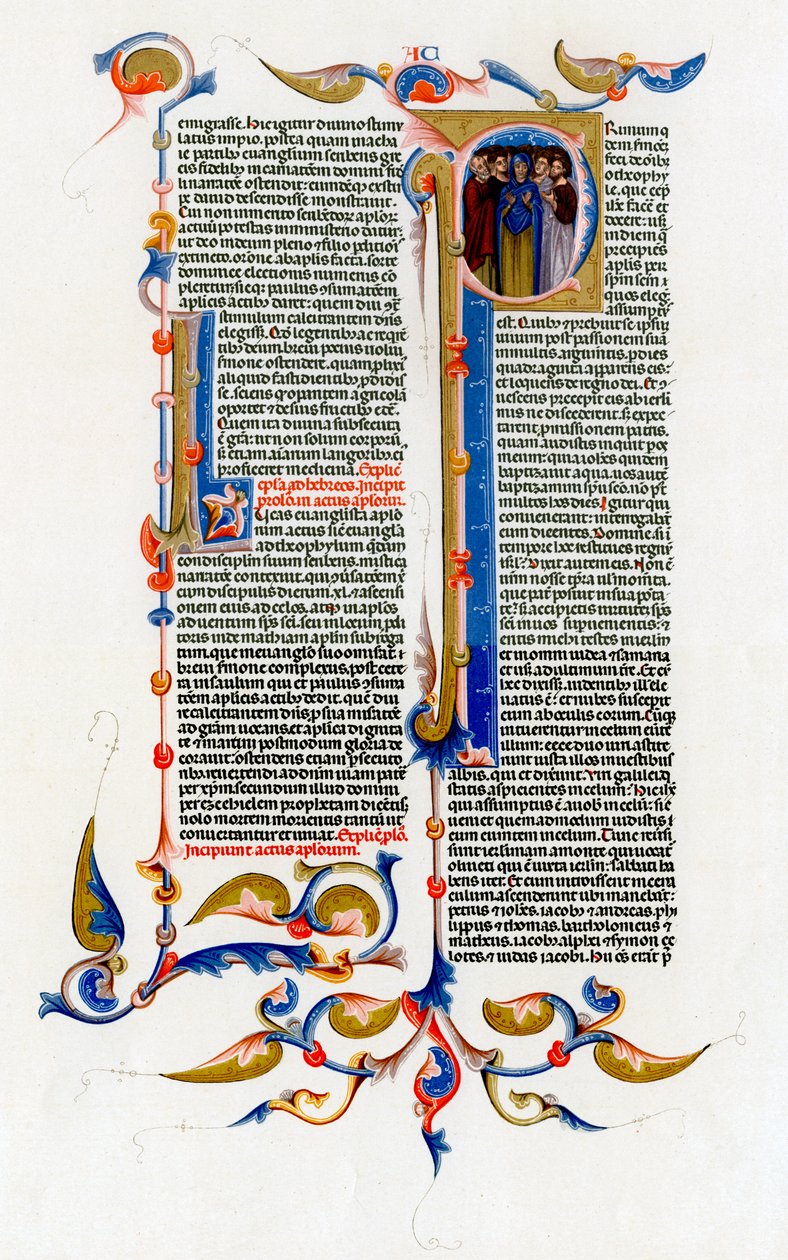 AC
emigrasse. Hic igitur diuino stimu
latus impio. postea quam macha
ie partibus euangelium scribens gre
cis fidelibus incarnationem domini fide
li narratione ostendit: eumdemque ex stirpe
dauid descendisse monstrauit.
Cui non inmerito scribendorum aplorum
actuum potestas in ministerio datur:
ut deo in deum pleno et filio perditionis
extincto. oratione ab aplis facta. sorte
dominice electionis numerus com
pleretur: sicque paulus consummationem
aplicis actibus daret: quem diu contra
stimulum calcitrantem dominus
elegisset. Quod legentibus ac requiren
tibus deum breui potius uolui
sermone ostendere. quam prolixi
aliquid fastidientibus prodidis
se. sciens quod operantem agricolam
oportet de suis fructibus edere.
Quem ita diuina subsecuta
est gratia: ut non solum corporibus
sed etiam animarum langoribus ei
proficeret medicina. Explicit
epistola ad hebreos. Incipit
prologus in actus aplorum.
Lucas euangelista aplo
rum actus sicut euangelia
ad theophylum quemdam
condiscipulum suum scribens. mistica
narratione contexuit. qui post passionem christi
cum discipulis dierum .xl. et ascensi
onem eius ad celos. atque in aplos
aduentum sps sci. seu in locum pdi
toris iude mathiam aplum subroga
tum. que in euangelio suo omiserat. in
breui sermone complexus. post cete
ra in saulum qui et paulus consumma
tionem aplicis actibus dedit. quem diu
recalcitrantem dominus. per suam misera
ad gratiam uocans. et aplica dignita
te et martirii postmodum gloria de
corauit. ostendens etiam persecuto
ribus reuertendi ad dominum uiam patere
per xpm. secundum illud domini
per ezechielem prophetam dicentis;
nolo mortem morientis tantum ut
conuertantur et uiuat. Explicit prologus.
Incipiunt actus aplorum.
Primum q
dem sermonem
feci de omnibus
o theophy
le. que cepit
ihc facere et
docere: usque
in diem qua
precipiens
aplis per
spm scm
quos elegit
assumptus
est. Quibus et prebuit se ipsum
uiuum post passionem suam
in multis argumentis. per dies
quadraginta apparens eis:
et loquens de regno dei. Et con
uescens precepit eis ab ierso
limis ne discederent. sed expec
tarent promissionem patris.
quam audistis inquit per os
meum: quia iohannes quidem
baptizauit aqua. uos autem
baptizamini spiritu sco. non post
multos hos dies. Igitur qui
conuenerant: interrogabant
eum dicentes. Domine. si in
tempore hoc restitues regnum
israel? Dixit autem eis. Non est
uestrum nosse tempora uel momenta.
que pater posuit in sua pota
te. sed accipietis uirtutem sps
sci in uos superuenientis: et
eritis michi testes in ierlm
et in omni iudea et samaria
et usque ad ultimum terre. Et cum
hec dixisset. uidentibus illis ele
uatus est: et nubes suscepit
eum ab oculis eorum. Cumque
intuerentur in celum euntem
illum: ecce duo uiri astite
runt iuxta illos in uestibus
albis. qui et dixerunt. Viri galilei quid
statis aspicientes in celum? Hic ihc
qui assumptus est a uobis in celum: sic
ueniet quemadmodum uidistis
eum euntem in celum. Tunc reuersi
sunt ierlimam a monte qui uocatur
oliueti qui est iuxta ierlm: sabbati ha
bens iter. Et cum introissent in cena
culum ascenderunt ubi manebant:
petrus et iohes. iacobus et andreas. phi
lippus et thomas. bartholomeus et
matheus. iacobus alphei et symon ze
lotes. et iudas iacobi. Hii omnes erant p